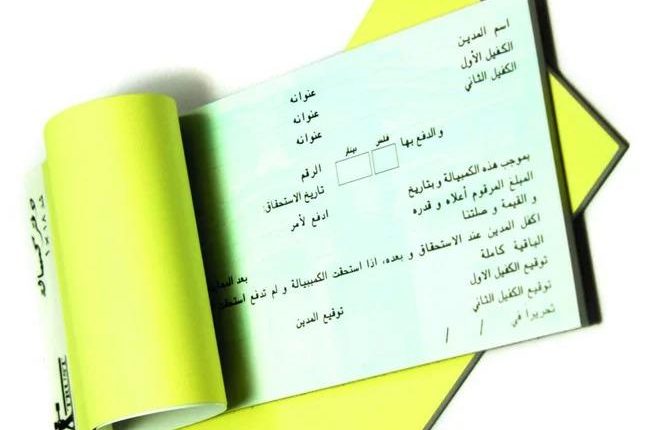 اسم المدين عنوانه
الكفيل الأول عنوانه
الكفيل الثاني عنوانه
فلس دينار
والدفع بها الرقم
تاريخ الاستحقاق:
بموجب هذه الكمبيالة وبتاريخ ادفع لأمر
المبلغ المرقوم أعلاه و قدره
و القيمة و صلتنا
اكفل المدين عند الاستحقاق و بعده، اذا استحقت الكمبيالة و لم تدفع استحقت
الباقية كاملة
توقيع الكفيل الاول توقيع المدين
توقيع الكفيل الثاني
تحريرا في / /
TRUST